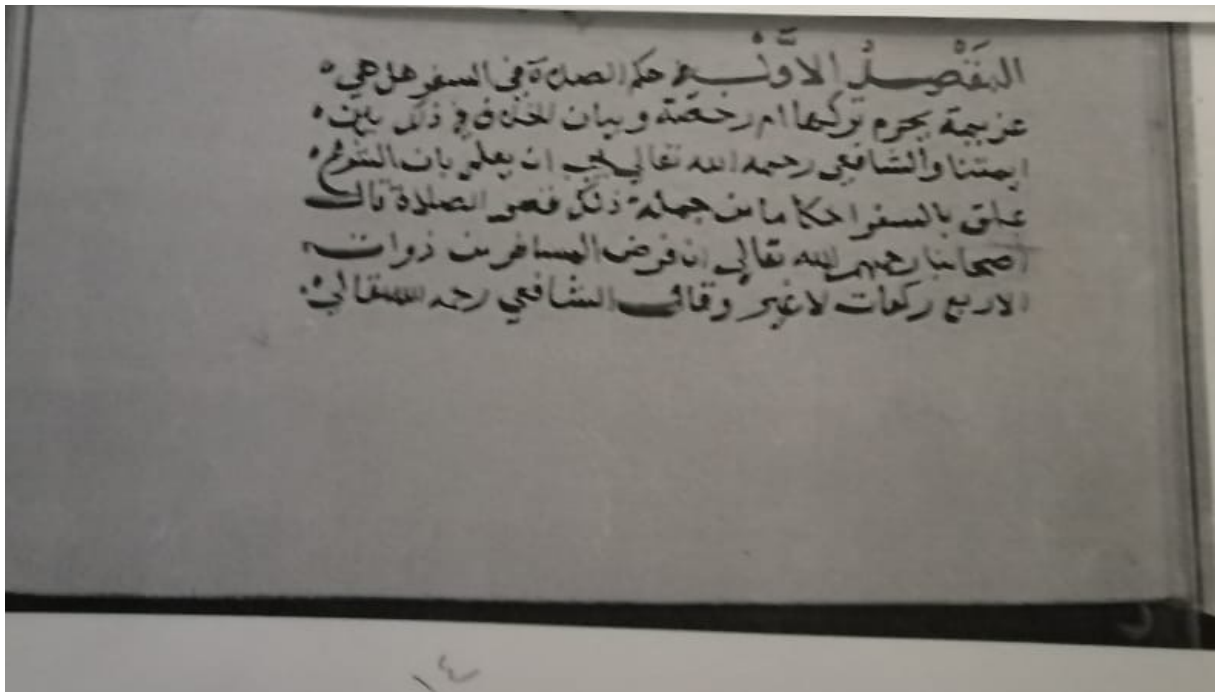 الفَصْلُ الاوَّلُ في حكم الصلاة في السفر هل هي
عزيمة يحرم تركها ام رخصة وبيان الخلاف في ذلك بين
ايمتنا والشافعي رحمه الله تعالي يجب ان يعلم بان الشرع
علق بالسفر احكاما من جملة ذلك قصر الصلاة قال
اصحابنا رحمهم الله تعالي ان فرض المسافر من ذوات
الاربع ركعات لا غير وقال الشافعي رحمه الله تعالي
١٤